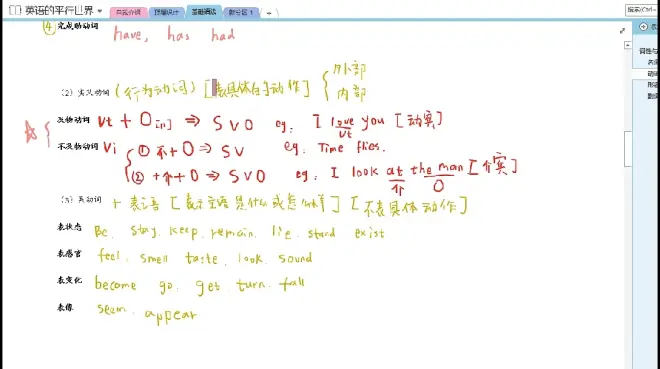 英语的平行世界
自我介绍 顶层设计 基础语法 新分区 1
搜索(Ctrl+
④ 完成助动词 have, has had
(2) 实义动词 (行为动词) [表具体的动作] { 外部
内部
及物动词 Vt + O [n] ⇒ S V O eg. I love you [动宾]
vt
不及物动词 Vi { ① 不+O ⇒ SV eg. Time flies.
② +介+O ⇒ SVO eg. I look at the man [介宾]
介 O
(3) 系动词 + 表语 [表示主语是什么或怎么样] [不表具体动作]
表状态 Be. stay. keep. remain. lie. stand exist
表感官 feel. smell taste. look. sound
表变化 become go. get. turn. fall
表像 seem. appear
词性与
名
动词
形